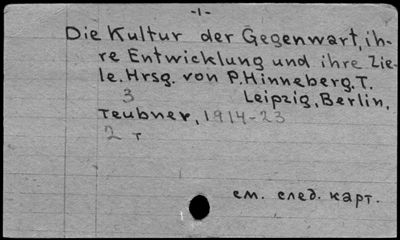 -1-
Die Kultur der Gegenwart, ih-
re Entwicklung und ihre Zie-
le. Hrsg. von P. Hinneberg. T.
3 Leipzig, Berlin,
Teubner, 1914-23
2 т
см. след. карт.